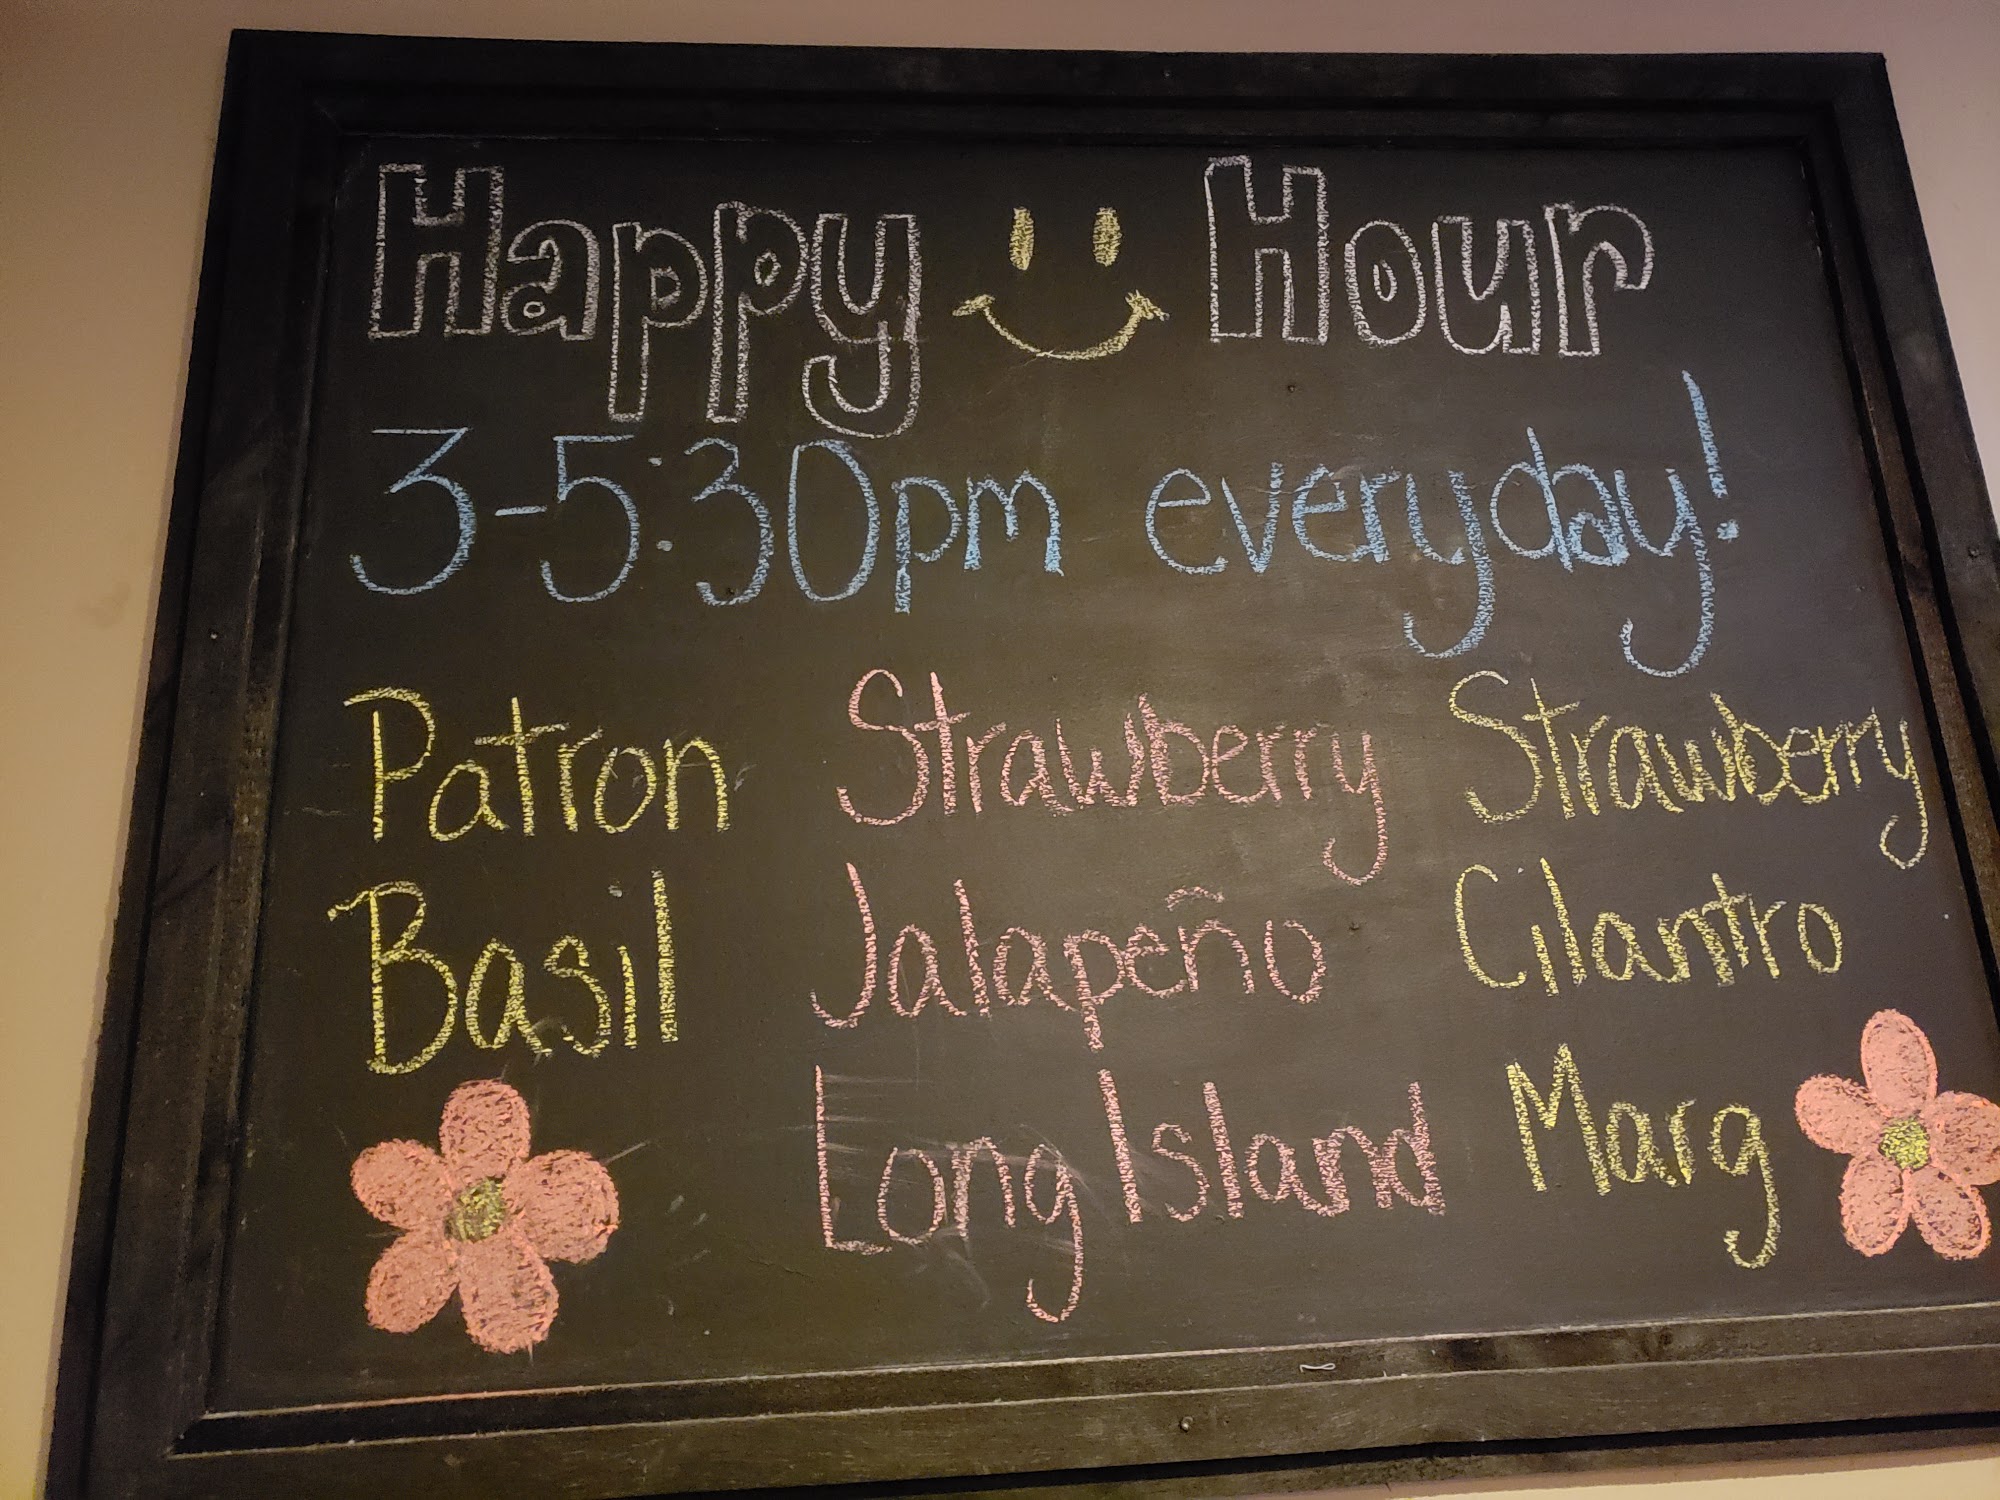 Happy Hour
3-5:30pm everyday!
Patron
Basil
Strawberry
Jalapeño
Long Island
Strawberry
Cilantro
Marg